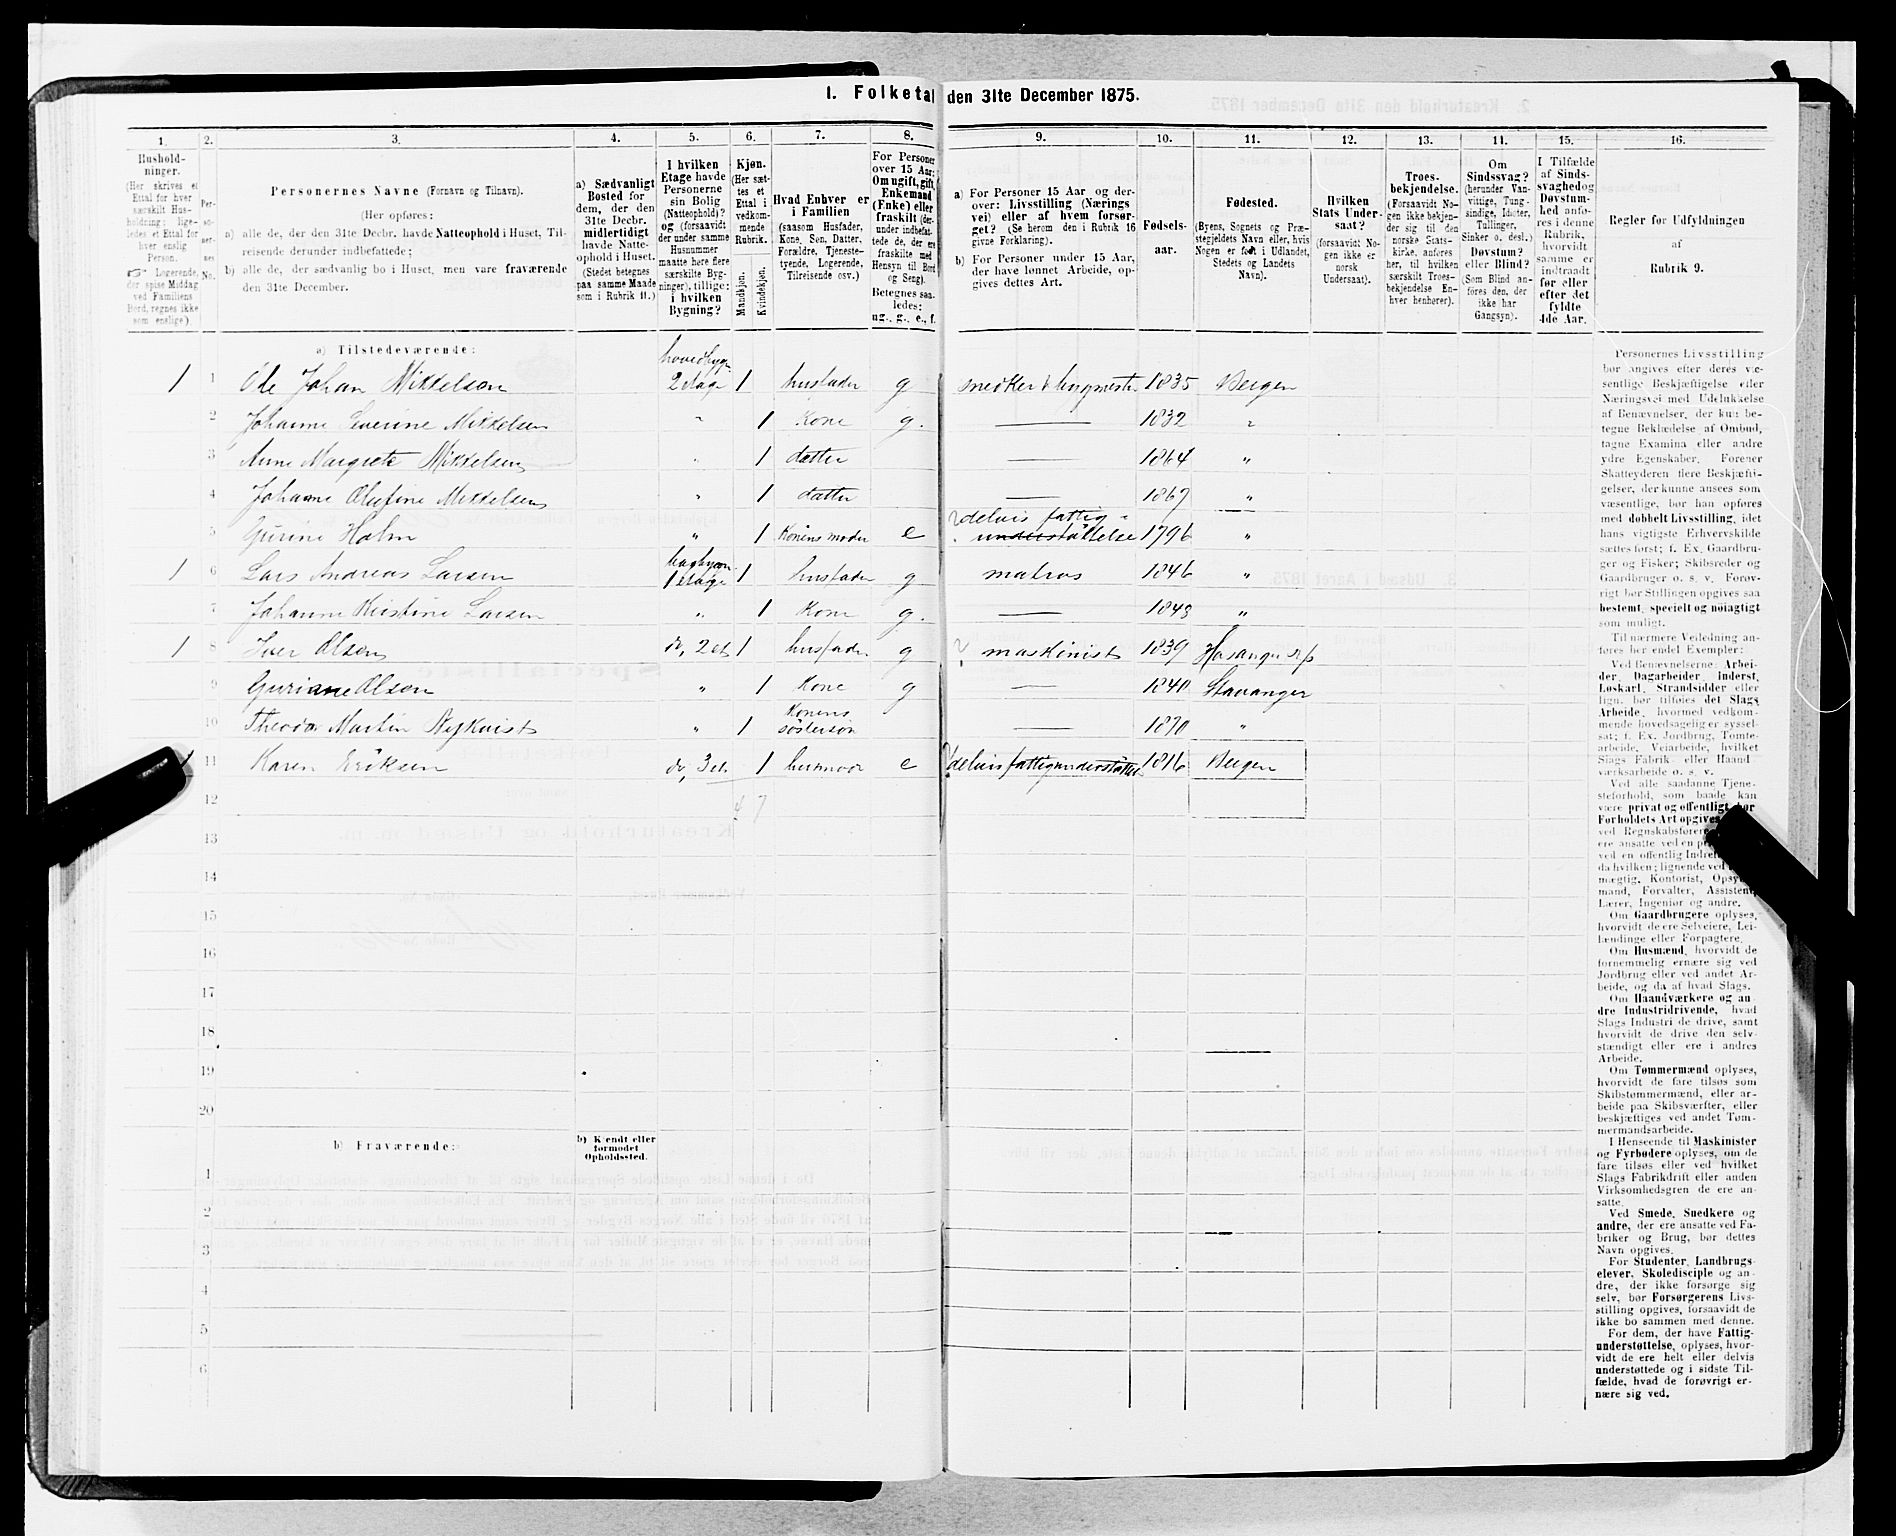 1. Folketal den 31te December 1875.
1.
2.
3.
4.
5.
6.
7.
8.
9.
10.
11.
12.
13.
14.
15.
16.
Hushold-
ninger.
(Her skrives et
Ettal for hver
særskilt Hus-
holdning; lige-
ledes et Ettal for
hver enslig
Person.
☞ Logerende,
der spise Middag
ved Familiens
Bord, regnes ikke
som enslige).
Per-
so-
ner-
nes
No.
Personernes Navne (Fornavn og Tilnavn).
(Her opføres:
a) alle de, der den 31te Decbr. havde Natteophold i Huset, Til-
reisende derunder indbefattede;
b) alle de, der sædvanlig bo i Huset, men vare fraværende
den 31te December.
a) Sædvanligt
Bosted for
dem, der den
31te Decbr.
midlertidigt
havde Natte-
ophold i Huset.
(Stedet betegnes
paa samme Maade
som i Rubrik 11.)
I hvilken
Etage havde
Personerne
sin Bolig
(Natteophold)?
og (forsaavidt
der under samme
Husnummer
maatte høre flere
særskilte Byg-
ninger), tillige:
i hvilken
Bygning?
Kjøn.
(Her sæt-
tes et
Ettal i
vedkom-
mende
Rubrik.
Mandkjøn.
Kvindekjøn.
Hvad Enhver er
i Familien
(saasom Husfader,
Kone, Søn, Datter,
Forældre, Tjeneste-
tyende, Logerende,
Tilreisende osv.)
For Personer
over 15 Aar:
Om ugift, gift,
Enkemand
(Enke) eller
fraskilt (der-
under indbefat-
tede de, der ere
fraskilte med
Hensyn til Bord
og Seng).
Betegnes saa-
ledes:
ug., g., e., f.
a) For Personer 15 Aar og der-
over: Livsstilling (Nærings
vei) eller af hvem forsør-
get? (Se herom den i Rubrik 16
givne Forklaring).
b) For Personer under 15 Aar,
der have lønnet Arbeide, op-
gives dettes Art.
Fødsels-
aar.
Fødested.
(Byens, Sognets og Præ-
stegjeldets Navn eller, hvis
Nogen er født i Udlandet,
Stedets og Landets
Navn).
Hvilken
Stats Under-
saat?
(forsaavidt No-
gen ikke er
norsk
Undersaat).
Troes-
bekjendelse.
(Forsaavidt No-
gen ikke bekjen-
der sig til den
norske Stats-
kirke, anføres
her, til hvilken
særskilt Troes-
bekjendelse En-
hver henhører).
Om
Sindssvag?
(herunder Van-
vittige, Tung-
sindige, Idioter,
Tullinger,
Sinker o. desl.)
Døvstum?
eller Blind?
(Som Blind an-
føres den, der
ikke har
Gangsyn).
I Tilfælde
af Sinds-
svaghed og
Døvstum-
hed anfø-
res i denne
Rubrik,
hvorvidt
samme er
indtraadt
før eller
efter det
fyldte
4de Aar.
Regler for Udfyldningen
af
Rubrik 9.
a) Tilstedeværende:
1 1 Ole Johan Mikkelsen hovedbygn 2 etage 1 husfader g snedker & 1835 Bergen
2 Johanne Severine Mikkelsen " 1 Kone g. — 1832 "
3 Anne Margrete Mikkelsen " 1 datter — 1864 "
4 Johanne Olufine Mikkelsen " 1 datter — 1867 "
5 Gurine Holm " 1 Konens moder e delvis fattig- understøttelse 1796 "
1 6 Lars Andreas Larsen bagbygn 1 etage 1 husfader g matros 1846 "
7 Johanne Kristine Larsen " 1 Kone g. — 1843 "
1 8 Iver Olsen do, 2 et 1 husfader g ? maskinist 1839
9 Guriane Olsen " 1 Kone g — 1840 Stavanger
10 Theodor Martin Nykvist " 1 Konens søsterson — 1870 "
1 11 Karen Eriksen do, 3 et 1 husmoder e delvis fattigunderstøttet 1816 Bergen
12 4 7
13
14
15
16
17
18
19
20
b) Fraværende:
b) Kjendt eller
formodet
Opholdssted.
1
2
3
4
5
6
Personernes Livsstilling
bør angives efter deres væ-
sentlige Beskjæftigelse eller
Næringsvei med Udelukkelse
af Benævnelser, der kun be-
tegne Beklædelse af Ombud,
tagne Examina eller andre
ydre Egenskaber. Forener
Skatteyderen flere Beskjæfti-
gelser, der kunne ansees som
væsentlige, bør han opføres
med dobbelt Livsstilling, idet
hans vigtigste Erhvervskilde
sættes først; f. Ex. Gaardbru-
ger og Fisker; Skibsreder og
Gaardbruger o. s. v. Forøv-
rigt bør Stillingen opgives saa
bestemt, specielt og nøiagtigt
som muligt.
Til nærmere Veiledning an-
føres her endel Exempler:
Ved Benævnelserne: Arbei-
der, Dagarbeider, Inderst,
Løskarl, Strandsidder eller
lign. bør tilføies det Slags
Arbeide, hvormed vedkom-
mende hovedsagelig er syssel-
sat; f. Ex. Jordbrug, Tomte-
arbeide, Veiarbeide, hvilket
Slags Fabrik- eller Haand
værksarbeide o. s. v.
Ved alle saadanne Tjene-
steforhold, som baade kan
være privat og offentligt, bør
Forholdets Art opgives
ved Regnskabsførere
ere ansatte ved en
ved en offentlig
da hvilken; lignende ved
mægtig, Kontorist,
mand, Forvalter, Assistent,
Lærer, Ingeniør og andre.
Om Gaardbrugere oplyses,
hvorvidt de ere Selveiere, Lei-
lændinge eller Forpagtere.
Om Husmænd, hvorvidt de
fornemmelig ernære sig ved
Jordbrug eller ved andet Ar-
beide, og da af hvad Slags.
Om Haandværkere og an
dre Industridrivende, hvad
Slags Industri de drive, samt
hvorvidt de drive den selv-
stændigt eller ere i andres
Arbeide.
Om Tømmermænd oplyses,
hvorvidt de fare tilsøs som
Skibstømmermænd, eller ar-
beide paa Skibsværfter, eller
beskjæftiges ved andet Tøm-
mermandsarbeide.
I Henseende til Maskinister
og Fyrbødere oplyses, om de
fare tilsøs eller ved hvilket
Slags Fabrikdrift eller anden
Virksomhedsgren de ere an-
satte.
Ved Smede, Snedkere og
andre, der ere ansatte ved Fa-
briker og Brug, bør dettes
Navn opgives.
For Studenter, Landbrugs-
elever, Skoledisciple og an-
dre, der ikke forsørge sig
selv, bør Forsørgerens Livs-
stilling opgives, forsaavidt de
ikke bo sammen med denne.
For dem, der have Fattig-
understøttelse, oplyses, hvor-
vidt de ere helt eller delvis
understøttede og i sidste Til-
fælde, hvad de forøvrigt er-
nære sig ved.